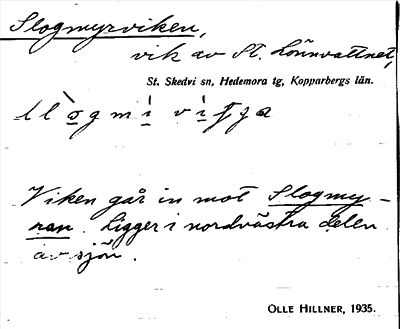 Slogmyrviken,
vik av St. Lönnvattnet,
St. Skedvi sn, Hedemora tg, Kopparbergs län.
Viken går in mot Slogmy-
ran. Ligger i nordvästra delen
av sjön.
OLLE HILLNER, 1935.